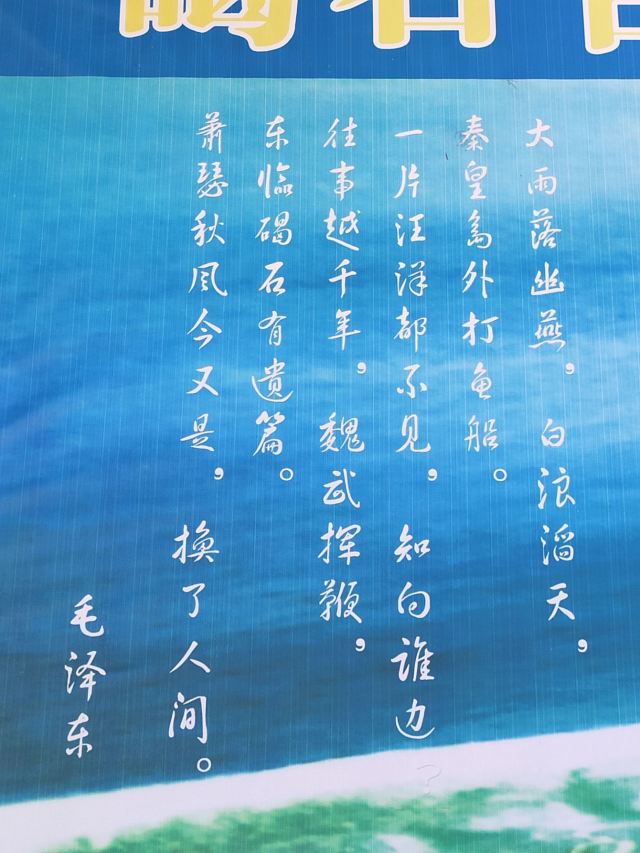 大雨落幽燕，白浪滔天，
秦皇岛外打鱼船。
一片汪洋都不见，知向谁边？
往事越千年，魏武挥鞭，
东临碣石有遗篇。
萧瑟秋风今又是，换了人间。
毛泽东